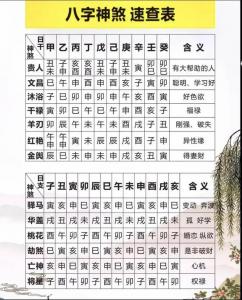 八字神煞 速查表
日干 神煞 甲 乙 丙 丁 戊 己 庚 辛 壬 癸 含 义
贵人 丑未 子申 亥酉 亥酉 丑未 子申 丑未 寅午 卯巳 卯巳 有大帮助的人
文昌 巳 午 申 酉 申 酉 亥 子 寅 卯 聪明、学习好
沐浴 子 巳 卯 申 卯 申 午 亥 酉 寅 好色欲
干禄 寅 卯 巳 午 巳 午 申 酉 亥 子 福禄
羊刃 卯 午 午 酉 子 刚强、破失
红艳 午 寅 未 辰 辰 戌 酉 子 申 异性缘
金舆 辰 巳 未 申 未 申 戌 亥 丑 寅 得妻财
日支 神煞 子 丑 寅 卯 辰 巳 午 未 申 酉 戌 亥 含 义
驿马 寅 亥 申 巳 寅 亥 申 巳 寅 亥 申 巳 变动 奔波
华盖 辰 丑 戌 未 辰 丑 戌 未 辰 丑 戌 未 孤 好学
桃花 酉 午 卯 子 酉 午 卯 子 酉 午 卯 子 婚恋 纵欲
劫煞 巳 寅 亥 申 巳 寅 亥 申 巳 寅 亥 申 是非破财
亡神 亥 申 巳 寅 亥 申 巳 寅 亥 申 巳 寅 心机
将星 子 酉 午 卯 子 酉 午 卯 子 酉 午 卯 权禄